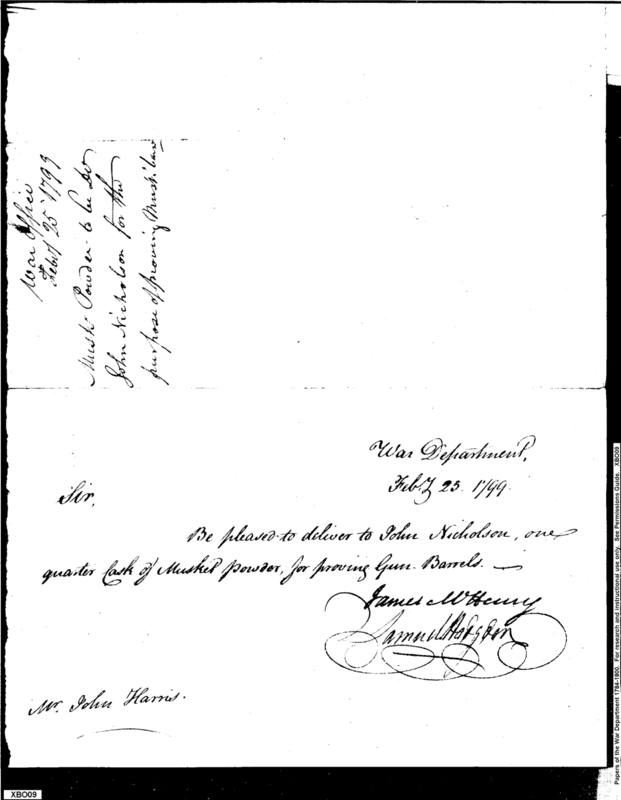 War Office
Feby 25 1799
Musk Powder to be
John Nicholson for the
purpose of proving Musk.
War Department,
Feby 25. 1799.
Sir,
Be pleased to deliver to John Nicholson, one
quarter Cask of Musket Powder, for proving Gun Barrels. —
James McHenry
Samuel Hodgdon
Mr. John Harris.
XBO09
Papers of the War Department 1784-1800. For research and instructional use only. See Permissions Guide. XBO09